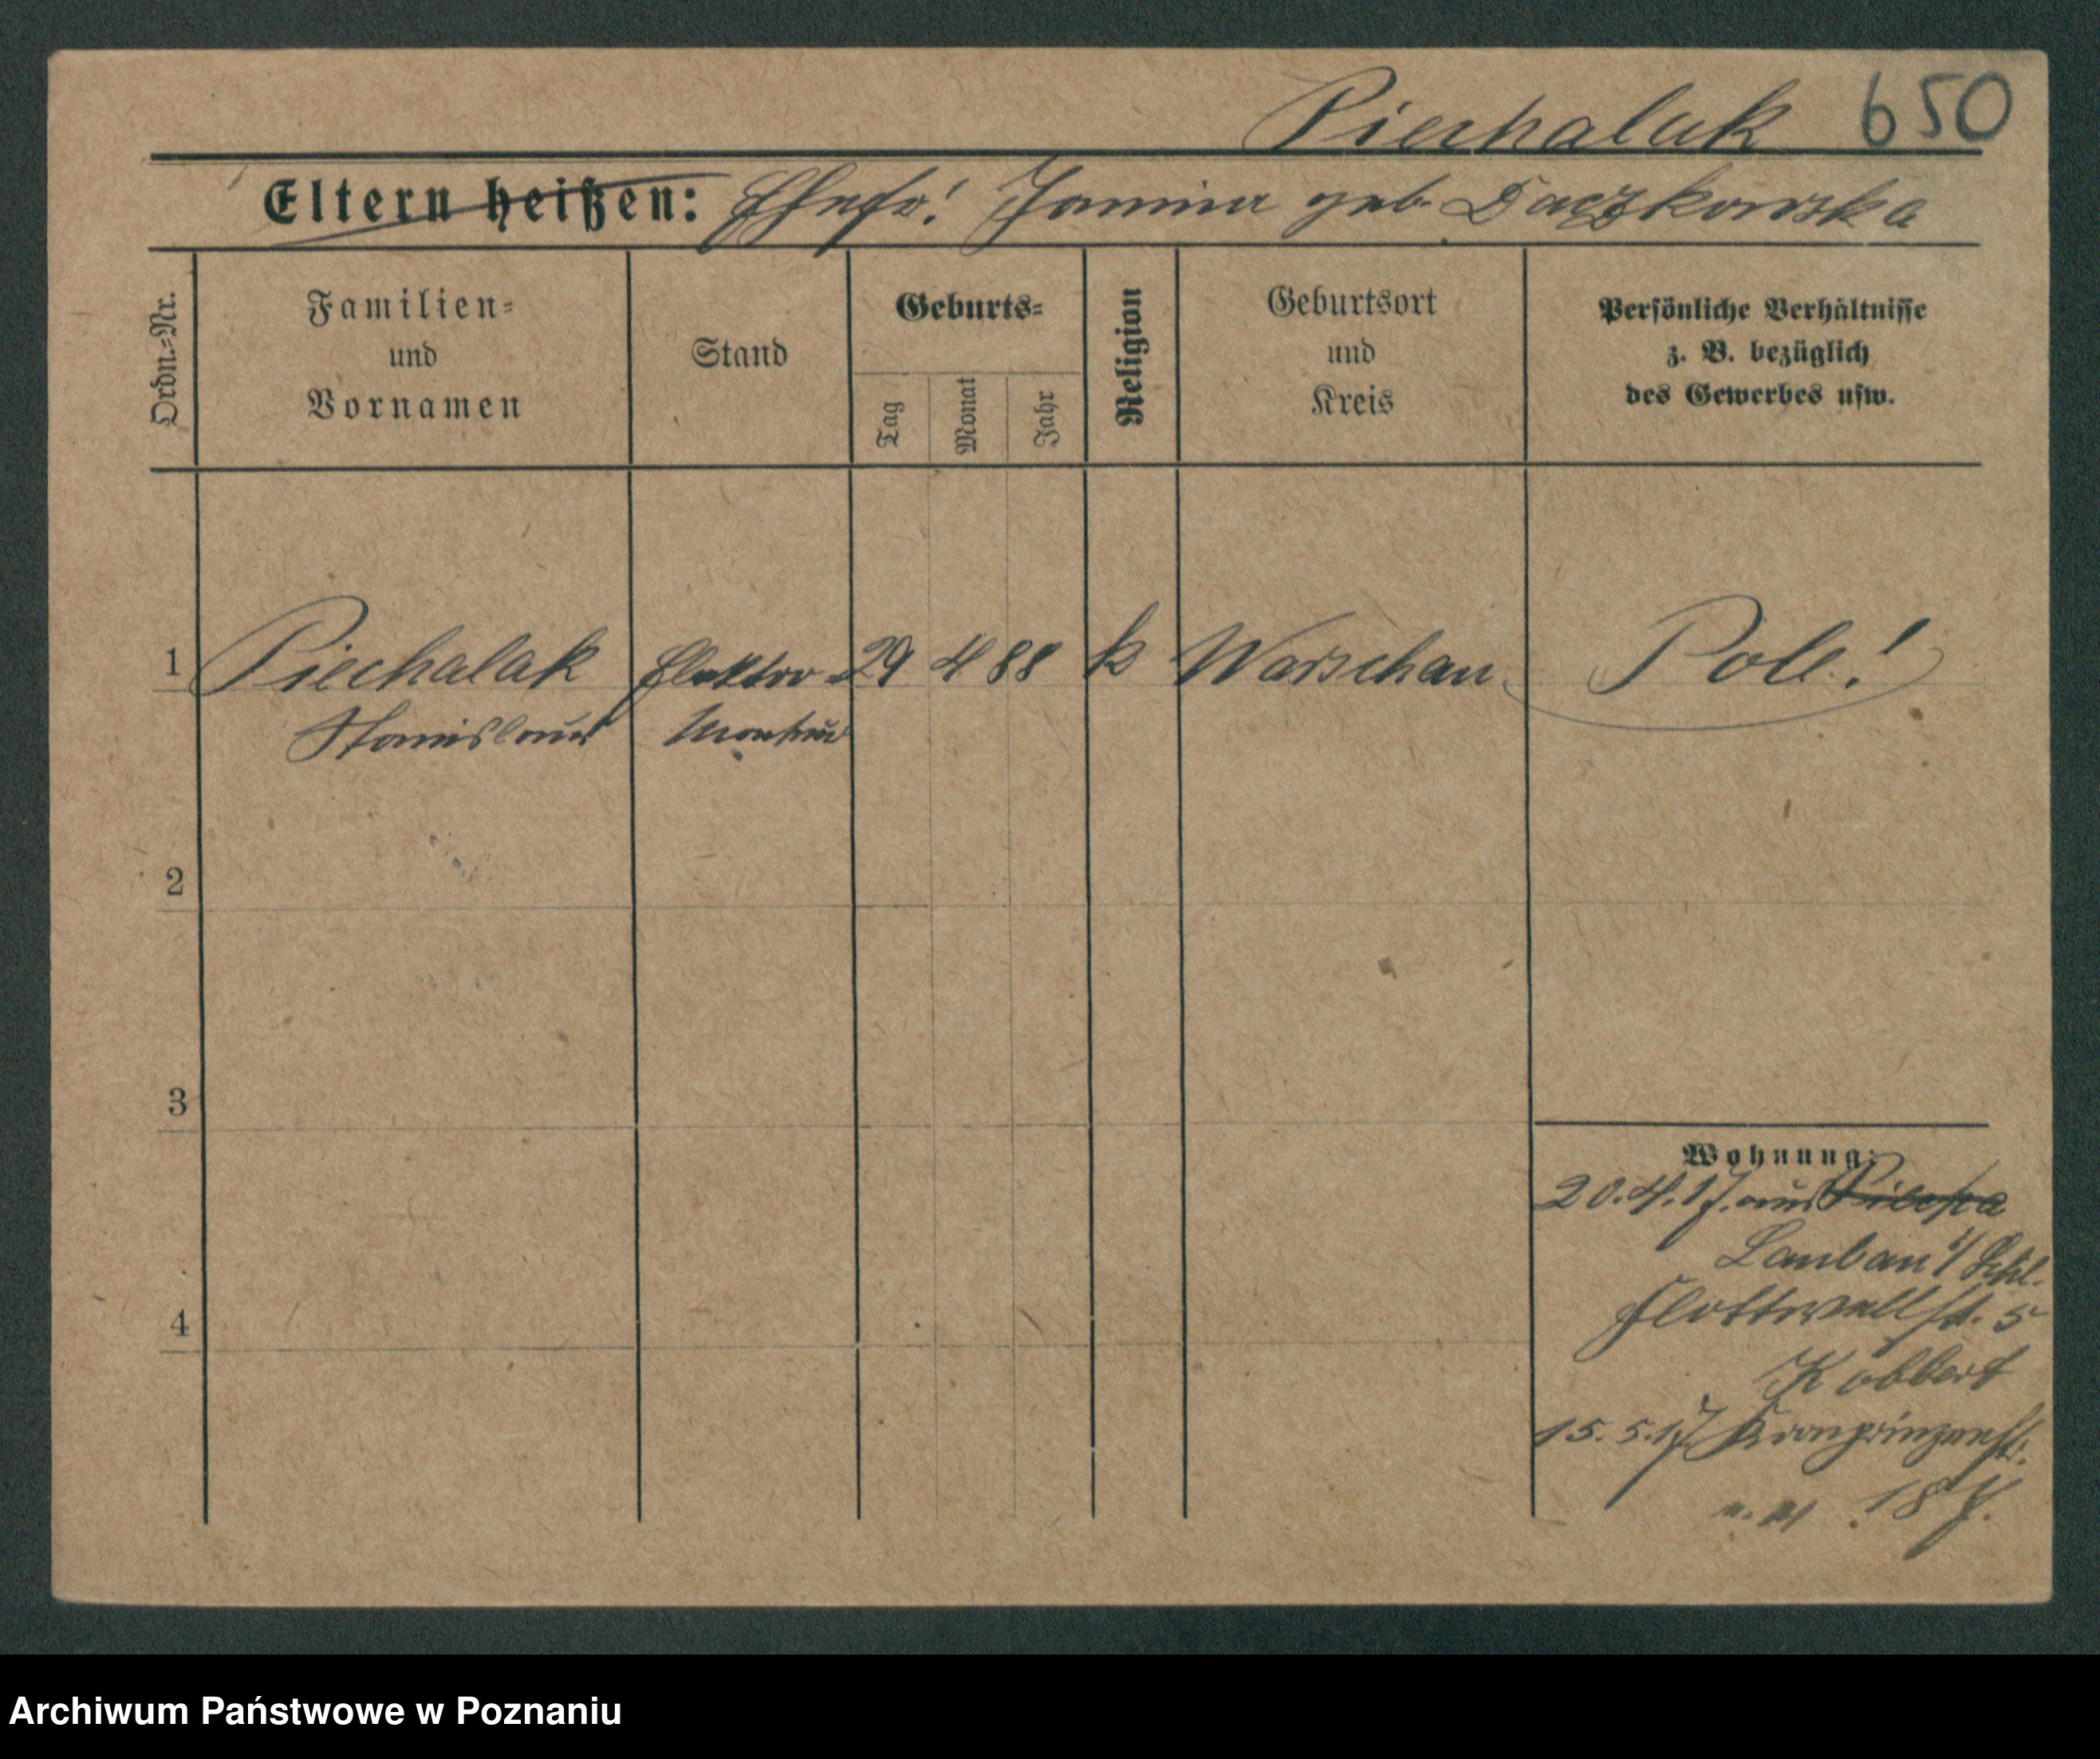 Piechalak 650
Eltern heißen: Ehefr! Janina geb. Daczkowska
Ordn.-Nr.
Familien-
und
Vornamen
Stand
Geburts-
Tag
Monat
Jahr
Religion
Geburtsort
und
Kreis
Persönliche Verhältnisse
z. B. bezüglich
des Gewerbes usw.
1 Piechalak Elektro- 29 4 88 k Warschau Pole!
Stanislaus Monteur
2
3
4
Wohnung:
20.4.17. aus
Lauban i/Schl.
Flottwellst. 5
Kobbert
15.5.17 Kronprinzenstr.
18
Archiwum Państwowe w Poznaniu